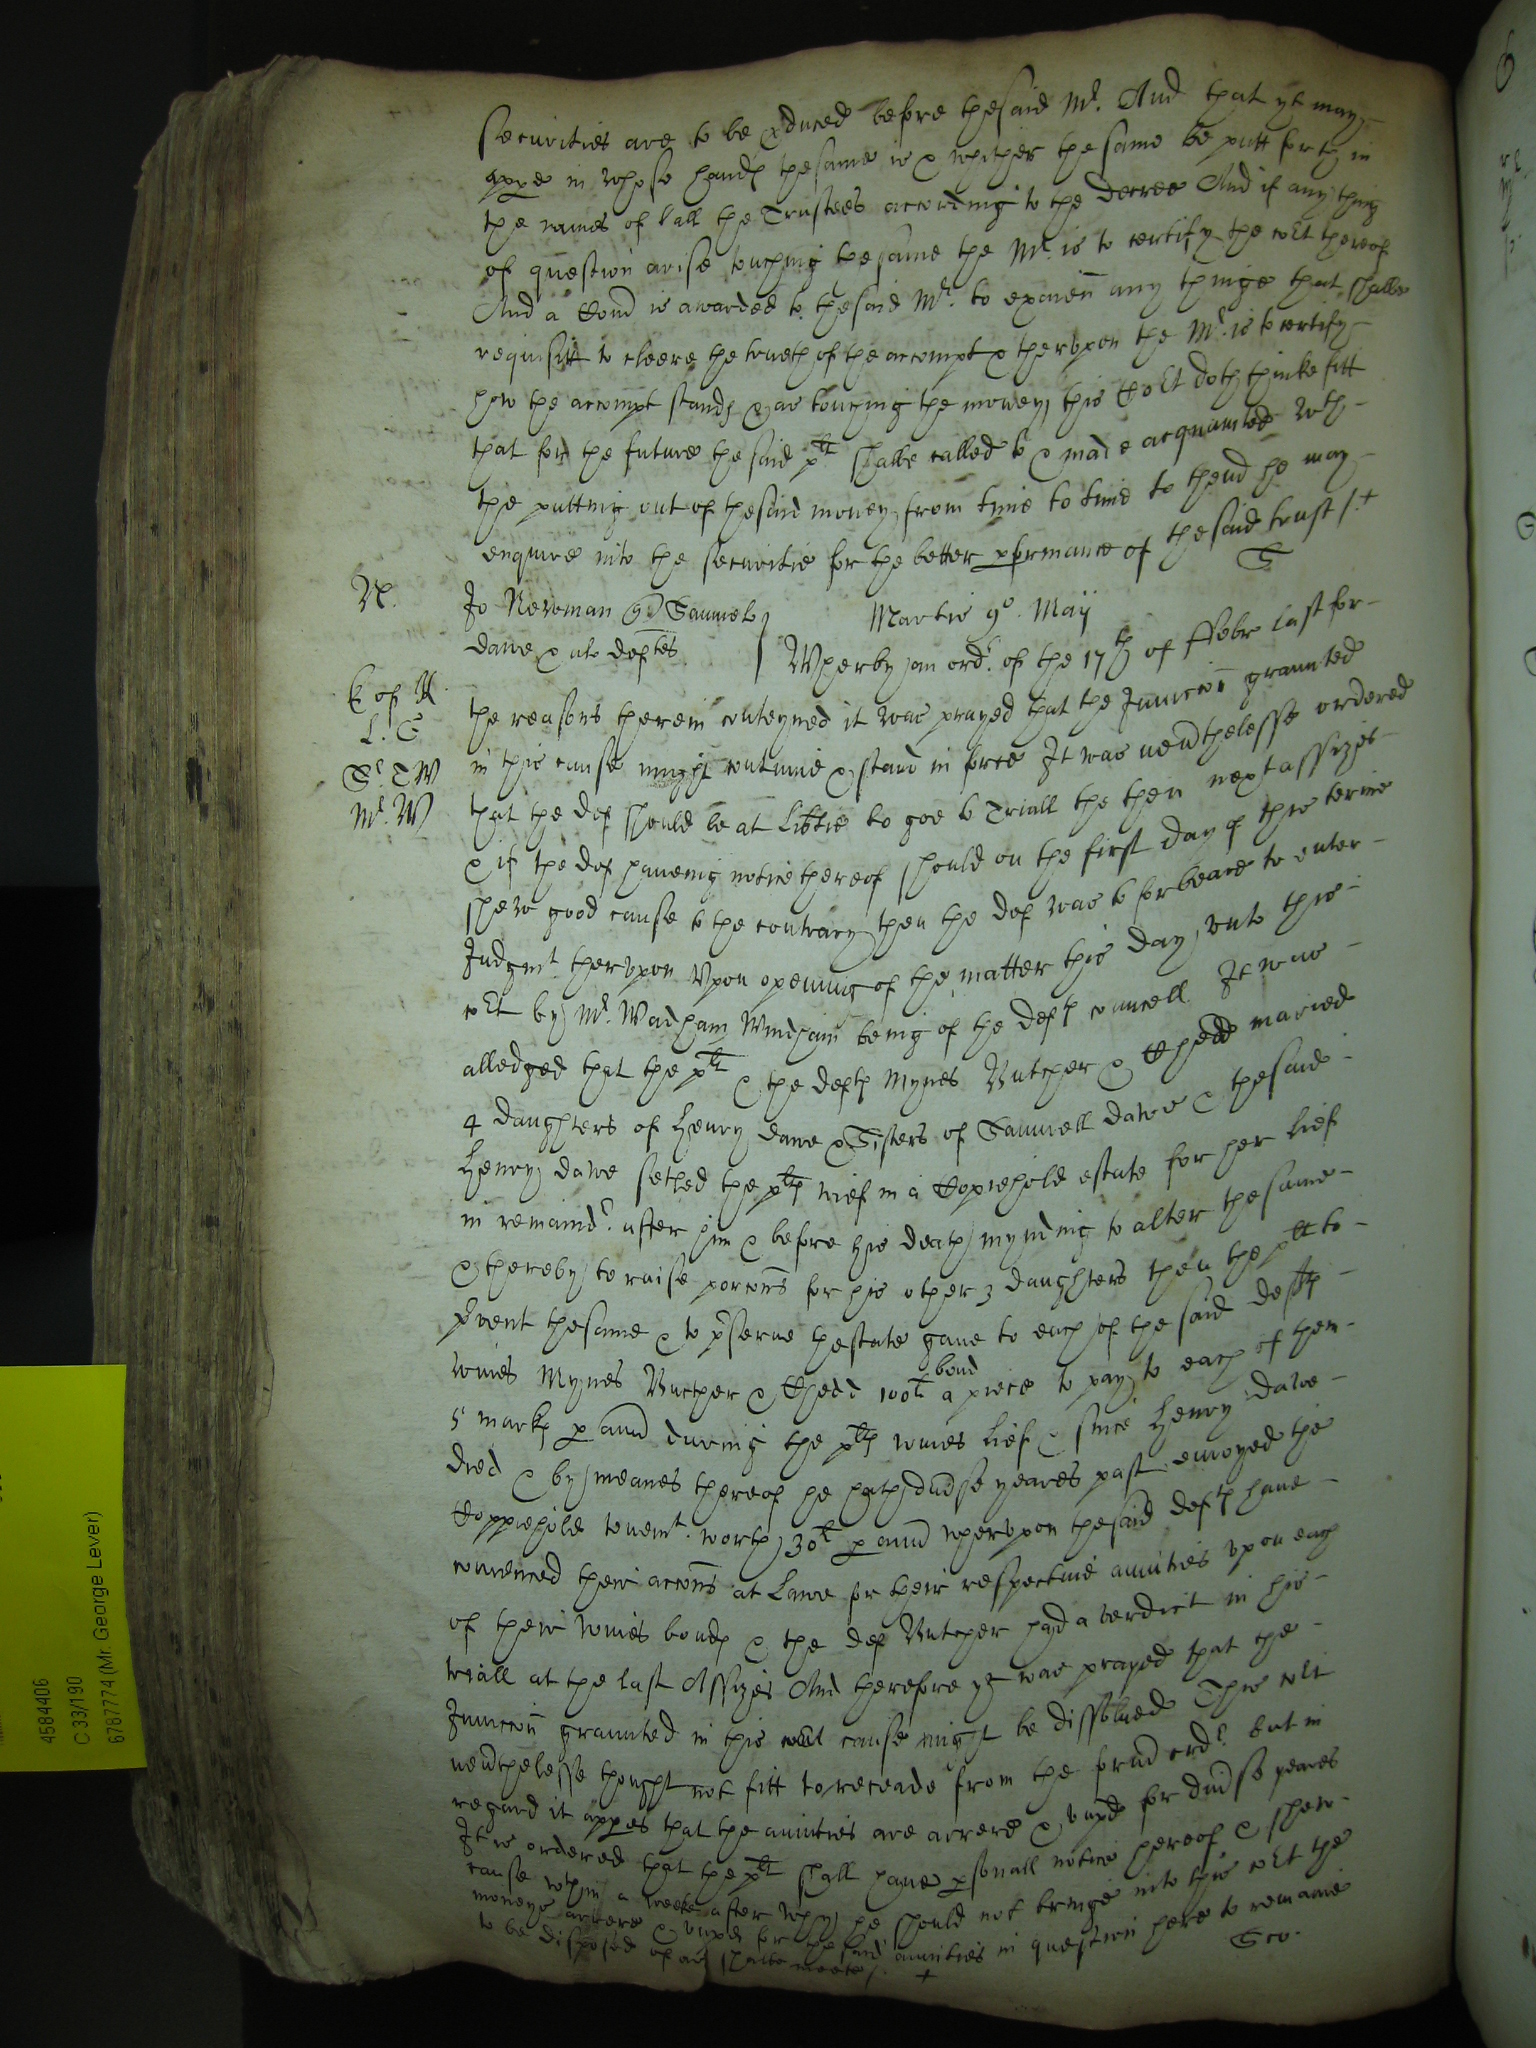 securities are to be pduced before thesaid Mr. And that yt may
appe in whose hands thesame is & whither the same be putt forth in
the names of all the Trustees according to the decree And if any thing
of question arise touching thesame the Mr. is to certify the cort thereof
And a Com̃ is awarded to thesaid Mr. to exaieñ any thinge that shalbe
requisitt to cleere the trueth of the accompt & thervpon the Mr. is to certify
how the accompt stands & as touching the money this Cort doth thinke fitt
that for the future the said plt shalbe called to & made acquainted wth
the putting out of thesaid money from time to time to thend he may
enquire into the securitie for the better pformance of thesaid trust /+
N.
Jo Newman qr Samuel
dawe & als deftes
Martis 9o. Maij
K of K
L. C
Sr. T W
Mr. W
Wherby an ordr. of the 17th of ffebr last for
the reasons therein conteyned it was prayed that the Iniuncc̃on graunted
in this cause might continue & stand in force It was neũthelesse ordered
that the def should be at Lib̃tie to goe to Triall the then next assizes
& if the def haueing notice thereof should on the first day of this terme
shew good cause to the contrary then the def was to forbeare to enter
Judgmt. thervpon Vpon opening of the matter this day vnto this
cort by Mr. Wadham Windham being of the defts councell It was
alledged that the plt & the defts Mynes Butcher & Chedd maried
4 daughters of Henry dawe & Sisters of Samuell dawe & thesaid
Henry dawe setled the plts wief in a Copiehold estate for her lief
in remaindr. after him & before his death mynding to alter thesame
& thereby to raise porcõns for his other 3 daughters then the plt to
prvent thesame & to prserue thestate gaue to each of the said defts
wiues Mynes Butcher & Chedd 100l bond a piece to pay to each of them
5 marks p anñ during the plts wiues lief & since Henry dawe
died & by meanes thereof he hath diũse yeares past enioyed the
Coppiehold tenemt. worth 30l p anñ whervpon thesaid defts haue
com̃enced their accõns at Lawe for their respectiue anuities vpon each
of their wiues bonds & the def Butcher had a verdict in his
triall at the last Assizes And therefore yt was prayed that the
Iniuncc̃on graunted in this cort cause might be dissolued This cort
neũthelesse thought not fitt to receade from the form̃ ordr. but in
regard it appes that the anuities are arrere & vnpd for diũse yeares
It is ordered that the plt shall haue psonall notice hereof & shew
cause wthin a weeke after why he should not bringe into this cort the
moneys arrere & vnpd for the said anuities in question here to remaine
to be disposed of as shalbe meete /. +